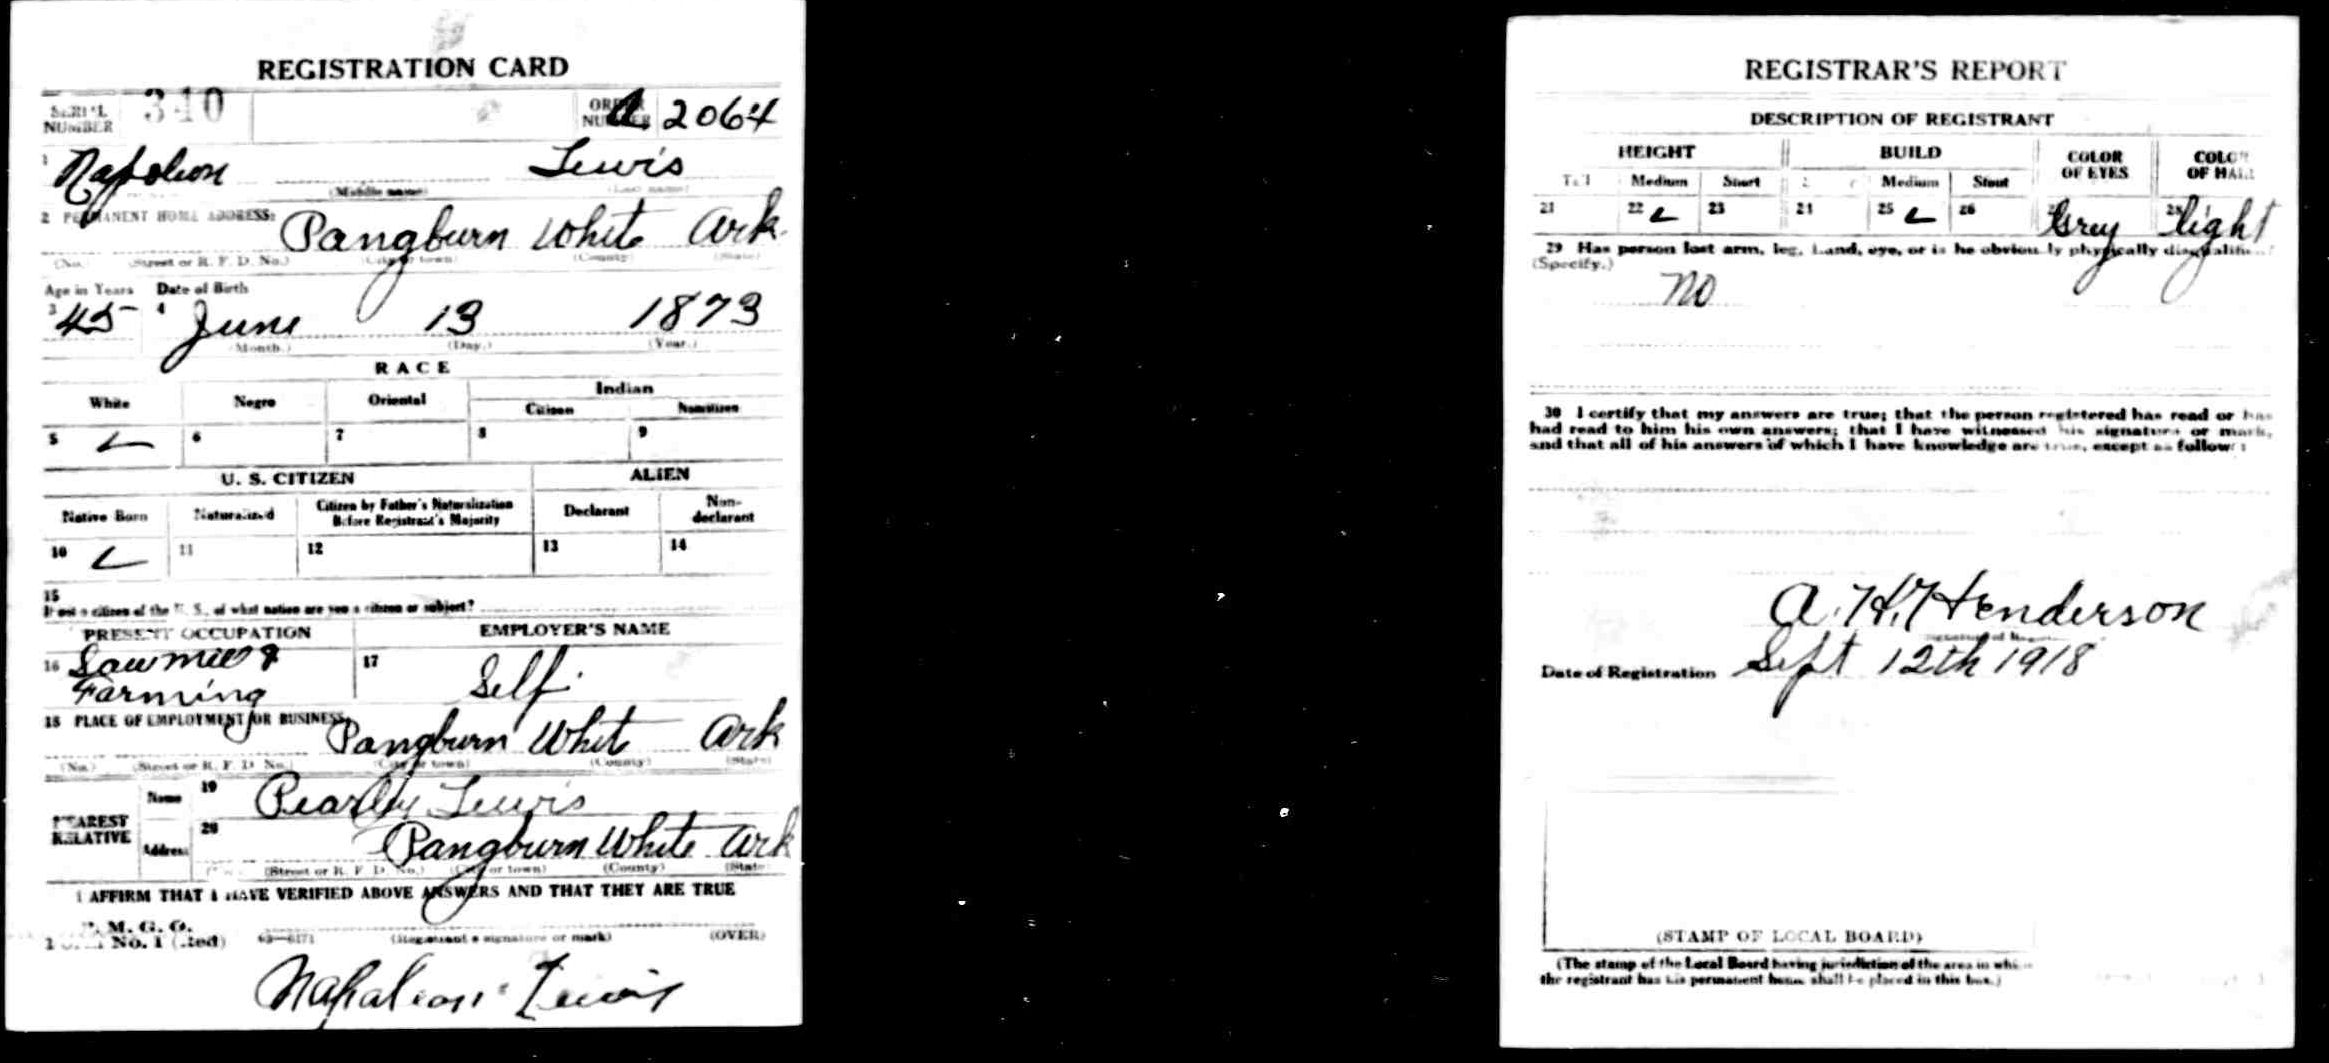 REGISTRATION CARD
SERIAL NUMBER 340 ORDER NUMBER A 2064
1 Napoleon Lewis
(Middle name) (Last name)
2 PERMANENT HOME ADDRESS:
Pangburn White Ark.
(No.) (Street or R. F. D. No.) (City or town) (County) (State)
Age in Years Date of Birth
3 45 4 June 13 1873
(Month.) (Day.) (Year.)
RACE
White Negro Oriental Indian
Citizen Noncitizen
5 6 7 8 9
U. S. CITIZEN ALIEN
Native Born Naturalized Citizen by Father's Naturalization Before Registrant's Majority Declarant Non-declarant
10 11 12 13 14
15
If not a citizen of the U. S., of what nation are you a citizen or subject?
PRESENT OCCUPATION EMPLOYER'S NAME
16 Sawmill & 17
Farming Self
18 PLACE OF EMPLOYMENT OR BUSINESS:
Pangburn White Ark
(No.) (Street or R. F. D. No.) (City or town) (County) (State)
NEAREST RELATIVE
Name 19 Pearley Lewis
Address 20 Pangburn White Ark
(Street or R. F. D. No.) (City or town) (County) (State)
I AFFIRM THAT I HAVE VERIFIED ABOVE ANSWERS AND THAT THEY ARE TRUE
P. M. G. O.
Form No. 1 (Red) 63—6171 (Registrant's signature or mark) (OVER)
Napaleon Lewis
REGISTRAR'S REPORT
DESCRIPTION OF REGISTRANT
HEIGHT BUILD COLOR OF EYES COLOR OF HAIR
Tall Medium Short Medium Stout
21 22 23 24 25 26 27 Grey 28 light
29 Has person lost arm, leg, hand, eye, or is he obviously physically disqualified?
(Specify.)
no
30 I certify that my answers are true; that the person registered has read or has
had read to him his own answers; that I have witnessed his signature or mark,
and that all of his answers of which I have knowledge are true, except as follows:
A. H. Henderson
Date of Registration Sept 12th 1918
(STAMP OF LOCAL BOARD)
(The stamp of the Local Board having jurisdiction of the area in which
the registrant has his permanent home shall be placed in this box.)